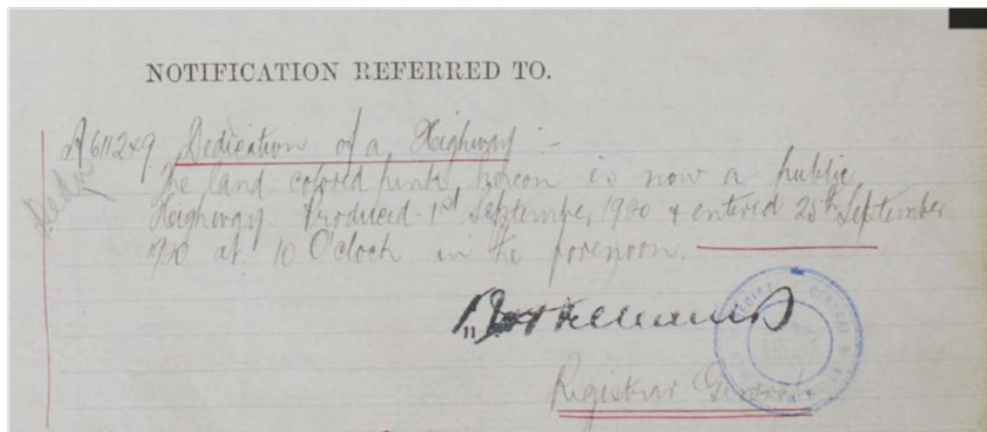 NOTIFICATION REFERRED TO.
A611249 Dedication of a Highway :-
The land colored pink hereon is now a public
Highway Produced 1st September 1920 & entered 25th September
1920 at 10 O'clock in the forenoon.
Registrar General